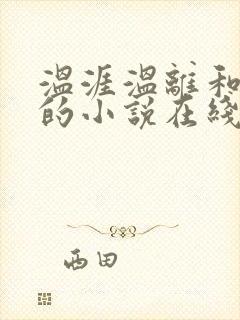 温涯温離和
的小説在綫
西田